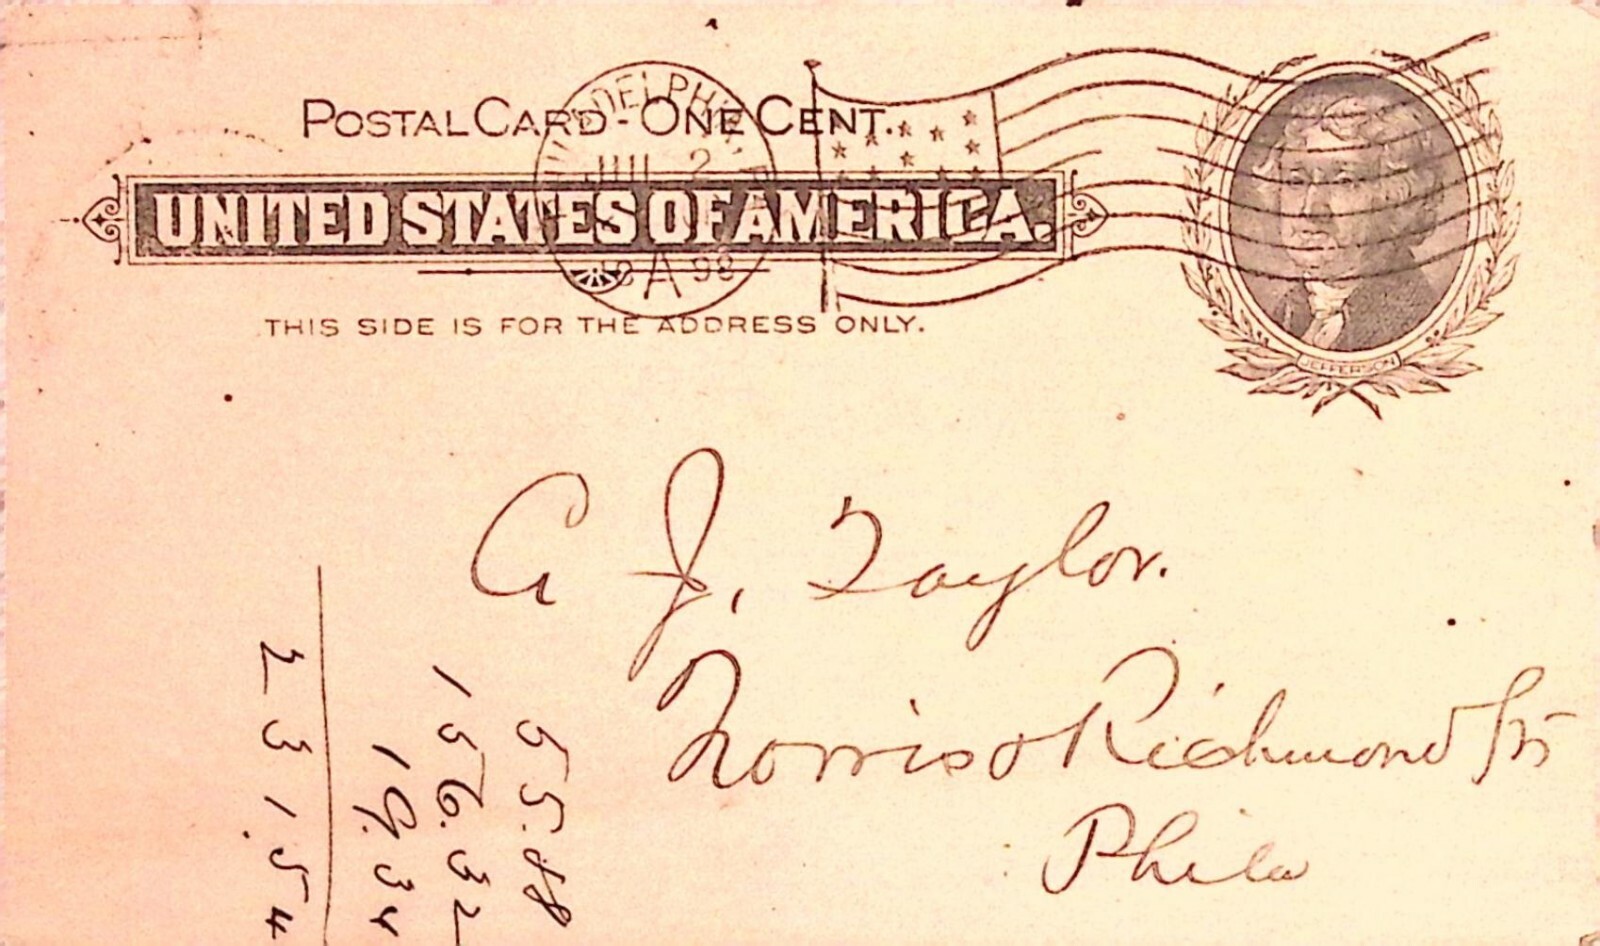 POSTAL CARD - ONE CENT.
PHILADELPHIA
2
UNITED STATES OF AMERICA.
A 98
THIS SIDE IS FOR THE ADDRESS ONLY.
JEFFERSON
A J, Taylor.
Norris & Richmond Sts
Phila
55.88
156.32
19.34
231.54